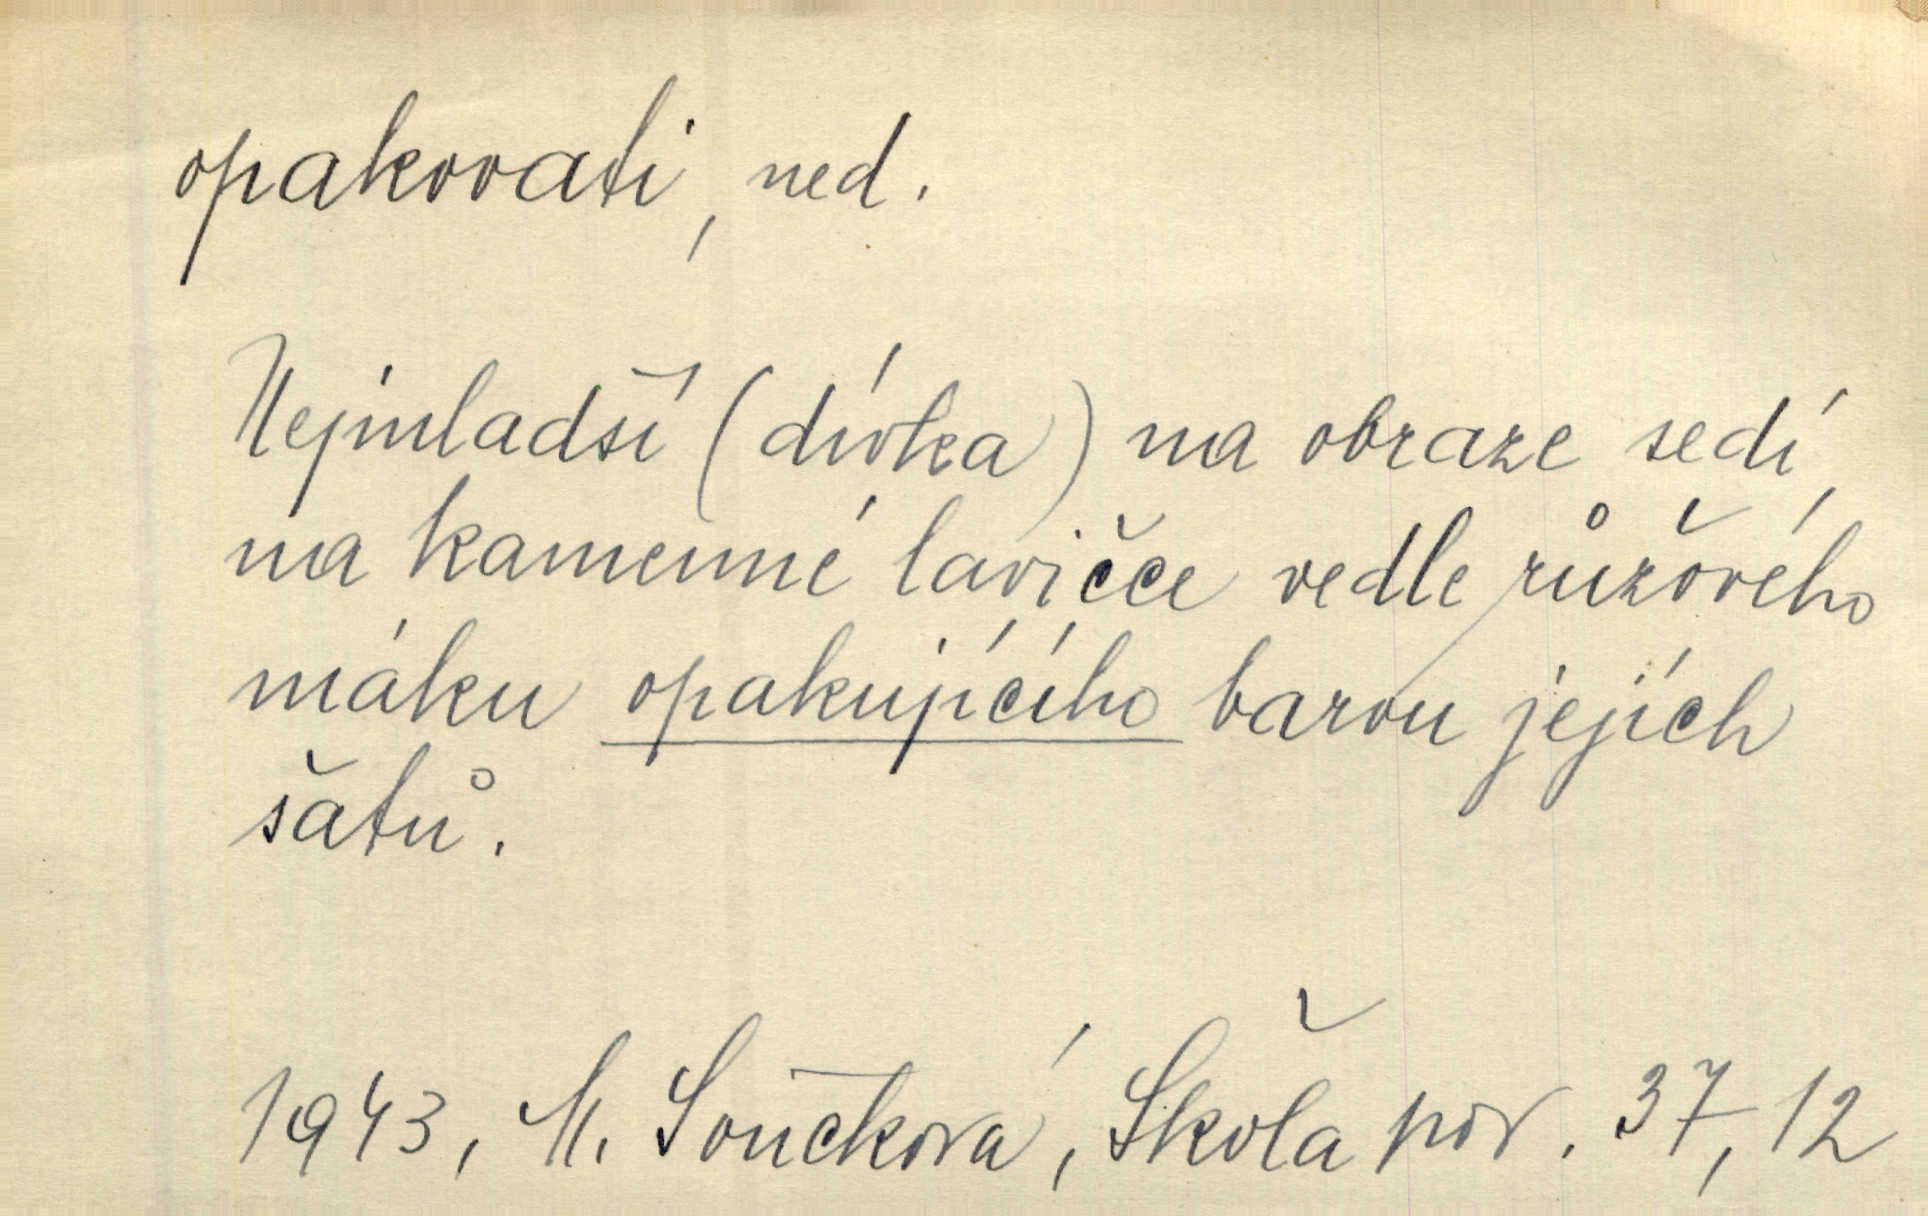 opakovati, ned.
Nejmladší (dívka) na obraze sedí
na kamenné lavičce vedle růžového
máku opakujícího barvu jejích
šatů.
1943, M. Součková, Škola pov. 37, 12